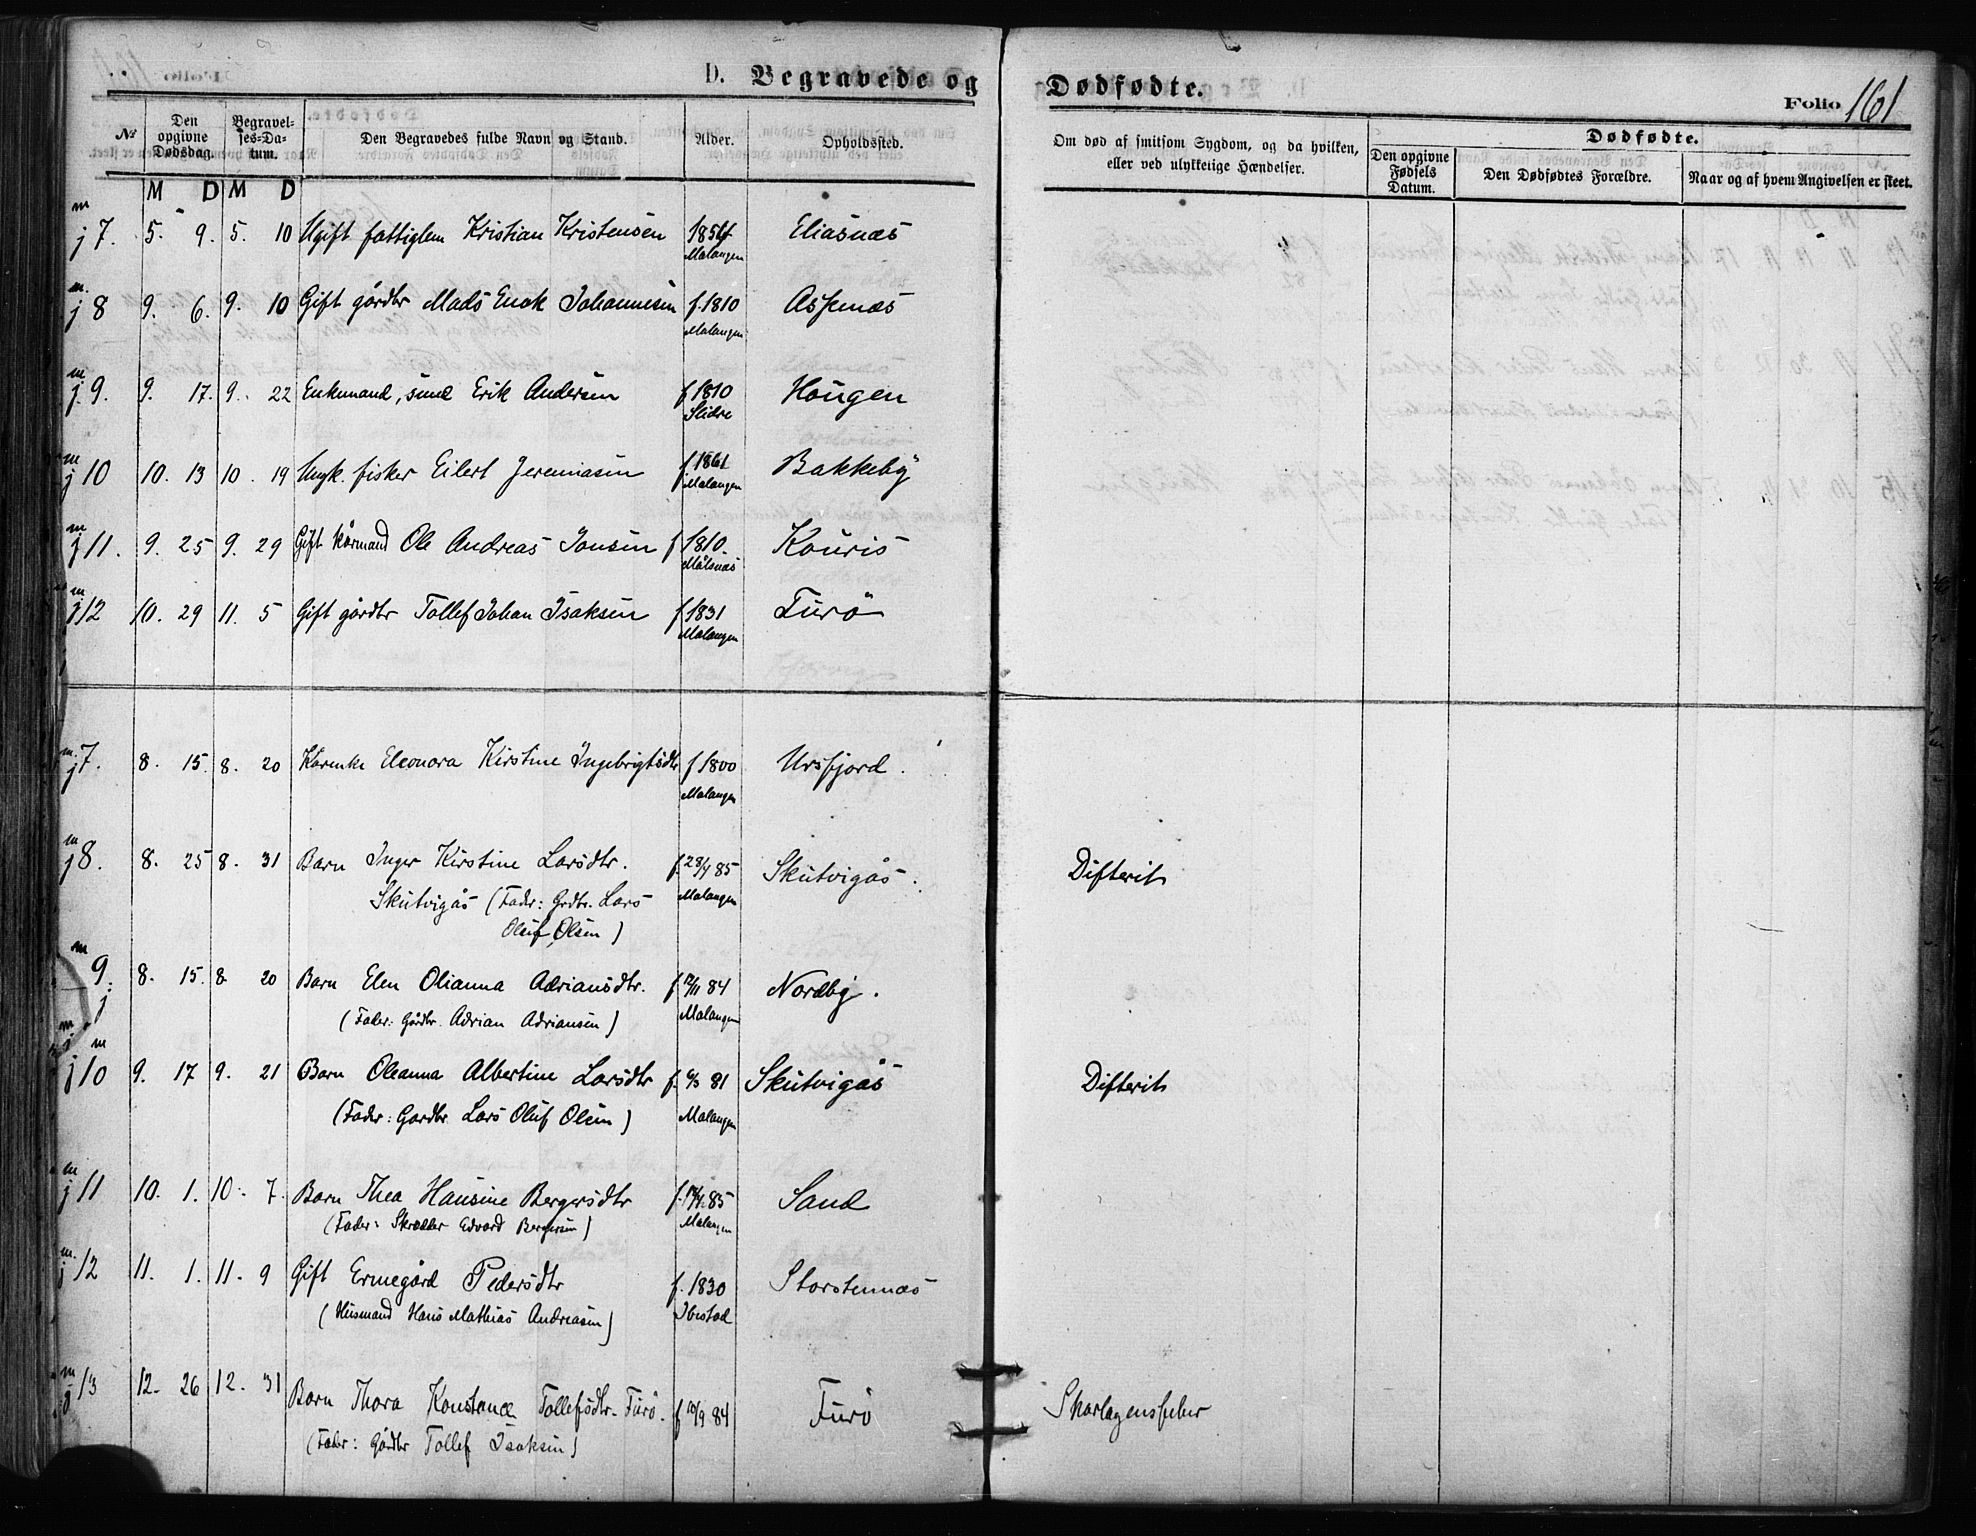 D. Begravede og Dødfødte.
Folio 161
№
Den opgivne Dødsdag.
Begravelses-Datum.
Den Begravedes fulde Navn og Stand.
Alder.
Opholdssted.
Om død af smitsom Sygdom, og da hvilken, eller ved ulykkelige Hændelser.
Dødfødte.
Den opgivne Fødsels Datum.
Den Dødfødtes Forældre.
Naar og af hvem Angivelsen er skeet.
M D M D
m
j 7. 5. 9. 5. 10 Ugift fattiglem Kristian Kristensen 1854 Eliasnæs
Malangen
m
j 8 9. 6. 9. 10 Gift gårdbr Mads Enok Johannesen f. 1810 Aspenæs
Malangen
m
j 9. 9. 17. 9. 22 Enkemand, Erik Andersen f 1810 Hougen
Slidre
m
j 10 10. 13 10. 19 Ungk. fisker Eilert Jeremiasen f 1861 Bakkeby
Malangen
m
j 11. 9. 25 9. 29 Gift kårmand Ole Andreas Jonsen f 1810. Kouris
Målsnæs
m
j 12 10. 29 11. 5 Gift gårdbr Tollef Johan Isaksen f. 1831 Turö
Malangen
m
j 7. 8. 15. 8. 20 Kårenke Eleonora Kirstine Ingebrigtsdtr f 1800 Ursfjord.
Malangen
m
j 8. 8. 25 8. 31 Barn Inger Kirstine Larsdtr. f. 28/4 85 Skutvigås. Difterit
Skutvigås (Fader: Grdbr. Lars Malangen
Oluf Olsen)
m
9. 8. 15. 8. 20 Barn Elen Olianna Adriansdtr. f. 12/11 84 Nordby.
j (Fader: Gårdbr. Adrian Adriansen) Malangen
m
j 10 9. 17 9. 21 Barn Oleanna Albertine Larsdtr f. 6/3 81 Skutvigås Difterit
(Fader: Gardbr. Lars Oluf Olsen) Malangen
m
j 11 10. 1. 10. 7. Barn Thea Hansine Bergersdtr f. 17/4 85 Sand
(Fader: Skrædder Edvard Bergersen) Malangen
m.
j 12 11. 1. 11. 9 Gift Ermegård Pedersdtr f. 1830 Storstennæs
(Husmand Hans Mathias Andreasen) Ibestad
m
j 13 12. 26 12. 31 Barn Thora Konstance Tollefsdtr. Turö. f 10/9 84 Turö Skarlagensfeber
(Fader: Gårdbr Tollef Isaksen)